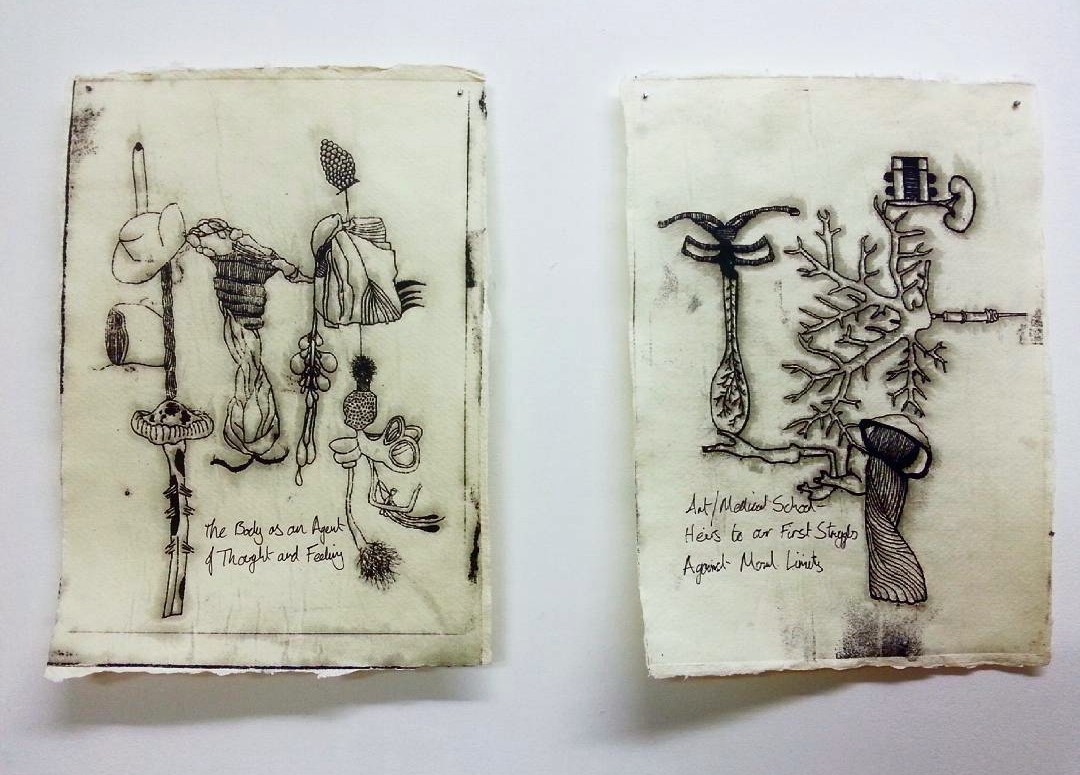 The Body as an Agent
of Thought and Feeling
Art/Medical School-
Heirs to our First Struggles
Against Moral Limits